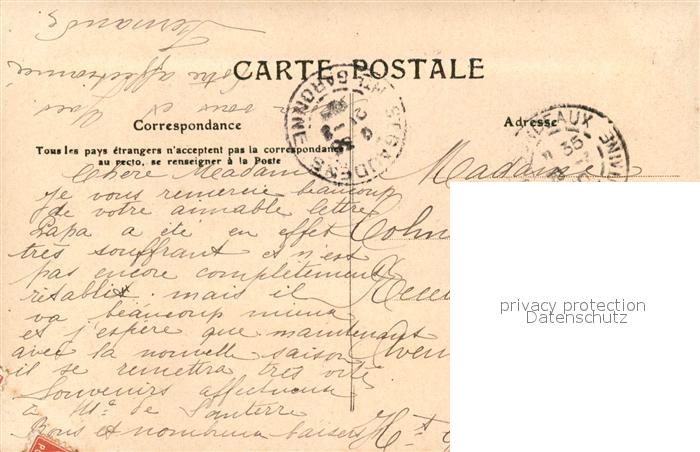 CARTE POSTALE
Correspondance
Adresse
Tous les pays étrangers n'acceptent pas la correspondance
au recto, se renseigner à la Poste
Chère Madame
je vous remercie beaucoup
de votre aimable lettre
Papa a été en effet
très souffrant et n'est
pas encore complètement
rétabli mais il
va beaucoup mieux
et j'espère que maintenant
avec la nouvelle saison
il se remettra très vite
Souvenirs affectueux
à Mle de Santerre
Bons et nombreux baisers
à vous et
Votre affectionnée
Fernande
Madame
ST GAUDENS
HTE GARONNE
BORDEAUX
35
privacy protection
Datenschutz